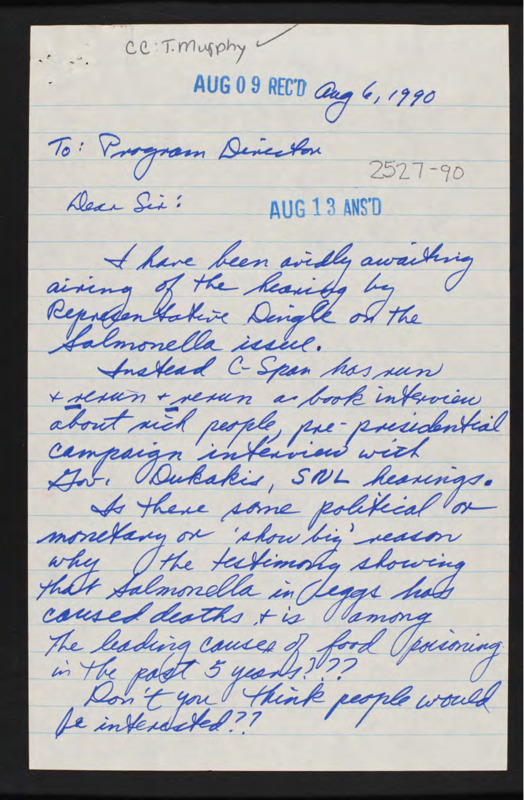 CC: T. Murphy ✓
AUG 09 REC'D Aug 6, 1990
To: Program Director
2527-90
Dear Sir:
AUG 13 ANS'D
I have been avidly awaiting
airing of the hearing by
Representative Dingle on the
Salmonella issue.
Instead C-Span has run
+ rerun + rerun a book interview
about rich people, pre-presidential
campaign interview with
Gov. Dukakis, SNL hearings.
Is there some political or
monetary or 'show biz' reason
why the testimony showing
that Salmonella in eggs has
caused deaths + is among
the leading causes of food poisoning
in the past 5 years???
Don't you think people would
be interested??